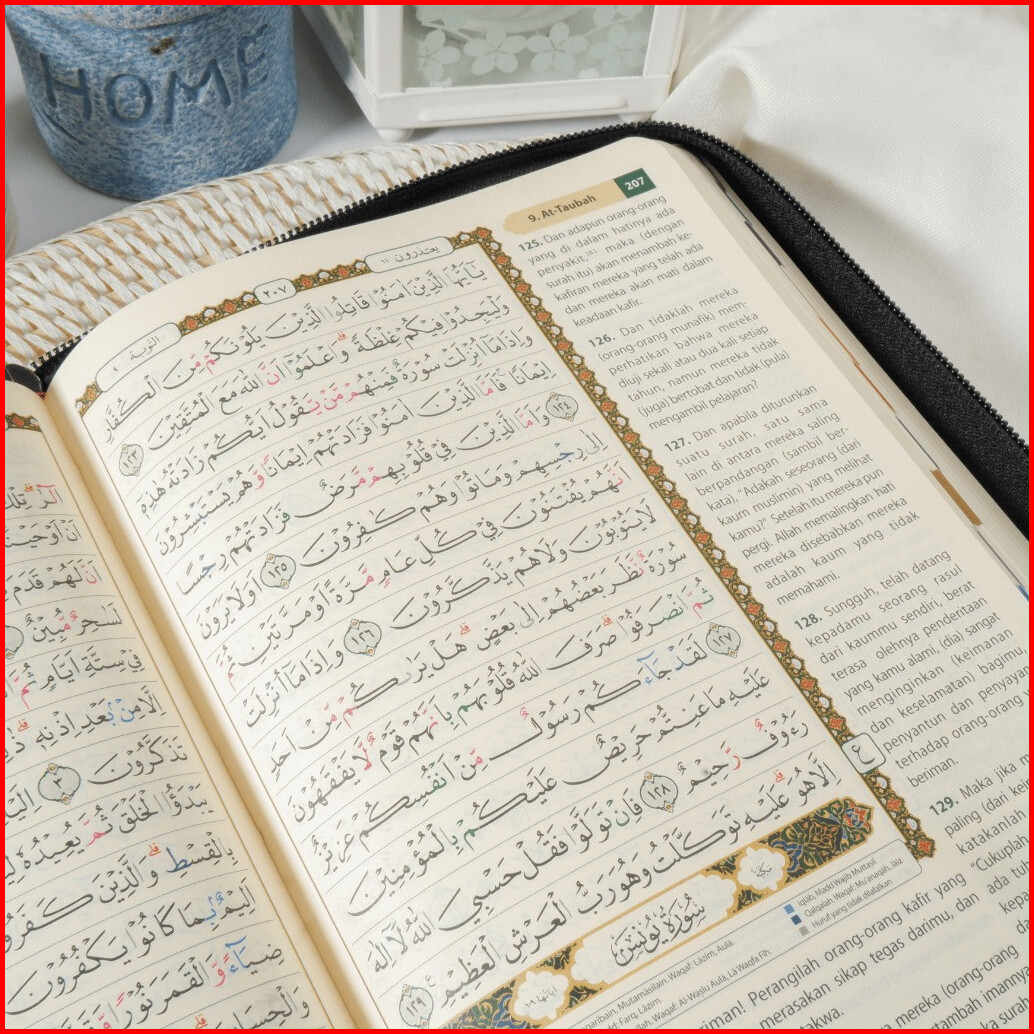 HOME
207
9. At-Taubah
125. Dan adapun orang-orang
yang di dalam hatinya ada
penyakit, maka (dengan
surah itu) akan menambah ke-
kafiran mereka yang telah ada
dan mereka akan mati dalam
keadaan kafir.
126. Dan tidaklah mereka
(orang-orang munafik) mem-
perhatikan bahwa mereka
diuji sekali atau dua kali setiap
tahun, namun mereka tidak
(juga) bertobat dan tidak (pula)
mengambil pelajaran?
127. Dan apabila diturunkan
suatu surah, satu sama
lain di antara mereka saling
berpandangan (sambil ber-
kata), "Adakah seseorang (dari
kaum muslimin) yang melihat
kamu?" Setelah itu mereka pun
pergi. Allah memalingkan hati
mereka disebabkan mereka
adalah kaum yang tidak
memahami.
128. Sungguh, telah datang
kepadamu seorang rasul
dari kaummu sendiri, berat
terasa olehnya penderitaan
yang kamu alami, (dia) sangat
menginginkan (keimanan
dan keselamatan) bagimu,
penyantun dan penyayang
terhadap orang-orang
beriman.
129. Maka jika m
paling (dari kei
katakanlah
"Cukuplah
ada tuh
kepa
يعتذرون ١١
٢٠٧
التوبة ٩
يٰٓاَيُّهَا الَّذِيْنَ اٰمَنُوْا قَاتِلُوا الَّذِيْنَ يَلُوْنَكُمْ مِّنَ الْكُفَّارِ
وَلْيَجِدُوْا فِيْكُمْ غِلْظَةًۗ وَاعْلَمُوْٓا اَنَّ اللّٰهَ مَعَ الْمُتَّقِيْنَ ١٢٣
وَاِذَا مَآ اُنْزِلَتْ سُوْرَةٌ فَمِنْهُمْ مَّنْ يَّقُوْلُ اَيُّكُمْ زَادَتْهُ هٰذِهٖٓ
اِيْمَانًاۚ فَاَمَّا الَّذِيْنَ اٰمَنُوْا فَزَادَتْهُمْ اِيْمَانًا وَّهُمْ يَسْتَبْشِرُوْنَ
١٢٤ وَاَمَّا الَّذِيْنَ فِيْ قُلُوْبِهِمْ مَّرَضٌ فَزَادَتْهُمْ رِجْسًا
اِلٰى رِجْسِهِمْ وَمَاتُوْا وَهُمْ كٰفِرُوْنَ ١٢٥ اَوَلَا يَرَوْنَ
اَنَّهُمْ يُفْتَنُوْنَ فِيْ كُلِّ عَامٍ مَّرَّةً اَوْ مَرَّتَيْنِ ثُمَّ
لَا يَتُوْبُوْنَ وَلَا هُمْ يَذَّكَّرُوْنَ ١٢٦ وَاِذَا مَآ اُنْزِلَتْ
سُوْرَةٌ نَّظَرَ بَعْضُهُمْ اِلٰى بَعْضٍۗ هَلْ يَرٰىكُمْ مِّنْ اَحَدٍ
ثُمَّ انْصَرَفُوْاۗ صَرَفَ اللّٰهُ قُلُوْبَهُمْ بِاَنَّهُمْ قَوْمٌ لَّا يَفْقَهُوْنَ
١٢٧ لَقَدْ جَاۤءَكُمْ رَسُوْلٌ مِّنْ اَنْفُسِكُمْ عَزِيْزٌ
عَلَيْهِ مَا عَنِتُّمْ حَرِيْصٌ عَلَيْكُمْ بِالْمُؤْمِنِيْنَ
رَءُوْفٌ رَّحِيْمٌ ١٢٨ فَاِنْ تَوَلَّوْا فَقُلْ حَسْبِيَ اللّٰهُ لَآ اِلٰهَ
اِلَّا هُوَۗ عَلَيْهِ تَوَكَّلْتُ وَهُوَ رَبُّ الْعَرْشِ الْعَظِيْمِ ١٢٩
ع
سُوْرَةُ يُوْنُسَ
Iqlab, Mad Wajib Muttasil
Qalqalah, Waqaf: Mu'anaqah, Jaiz
Huruf yang tidak dilafalkan
Mutamasilain, Waqaf: Lazim, Aula.
Waqaf: Al-Waslu Aula, La Waqfa Fih.
Perangilah orang-orang kafir yang
merasakan sikap tegas darimu, dan
mereka (orang-orang
اَنْ اَوْحَيْنَ
اَنَّ لَهُمْ قَدَمَ
لَسٰحِرٌ مُّبِيْنٌ
فِيْ سِتَّةِ اَيَّامٍ ثُمَّ
اِلَّا مِنْۢ بَعْدِ اِذْنِهٖۗ
تَذَكَّرُوْنَ ٣
يَبْدَؤُا الْخَلْقَ ثُمَّ يُعِيْدُهٗ
بِالْقِسْطِۗ وَالَّذِيْنَ كَفَرُوْ
اَلِيْمٌۢ بِمَا كَانُوْا يَكْفُرُوْنَ
ضِيَاۤءً وَّالْقَمَرَ نُوْرًا
وَالْحِسَابَ